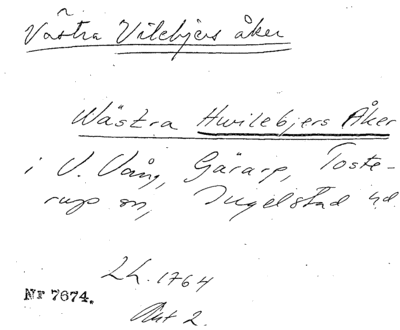 Västra Vilebjers åker
Wästra Hwilebjers Åker
i V. Vång, Gärarp, Toste-
rup sn, Ingelstad hd
LL. 1764
Akt 2.
NF 7674.